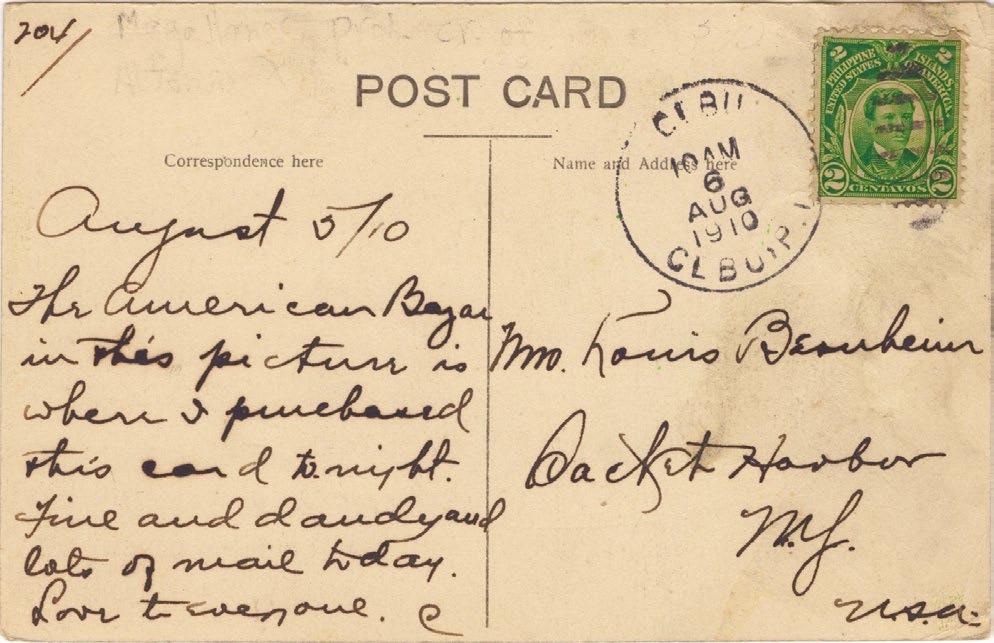 204/
POST CARD
Correspondence here
Name and Address here
CEBU
10 AM
6
AUG
1910
CEBU, P.I.
2 2
PHILIPPINE ISLANDS
UNITED STATES OF AMERICA
2 CENTAVOS 2
August 5/10
The American Bazar
in this picture is
where I purchased
this card to night.
Fine and dandy and
lots of mail today.
Love to everyone. C
Mrs. Louis Bernheim
Sacket Harbor
N.Y.
U.S.A.